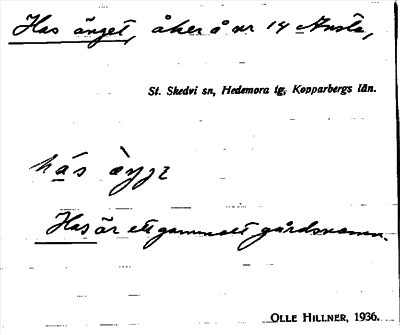 Has änget, åker å nr 14 Ansta,
St. Skedvi sn, Hedemora tg, Kopparbergs län.
Has är ett gammalt gårdsnamn.
OLLE HILLNER, 1936.